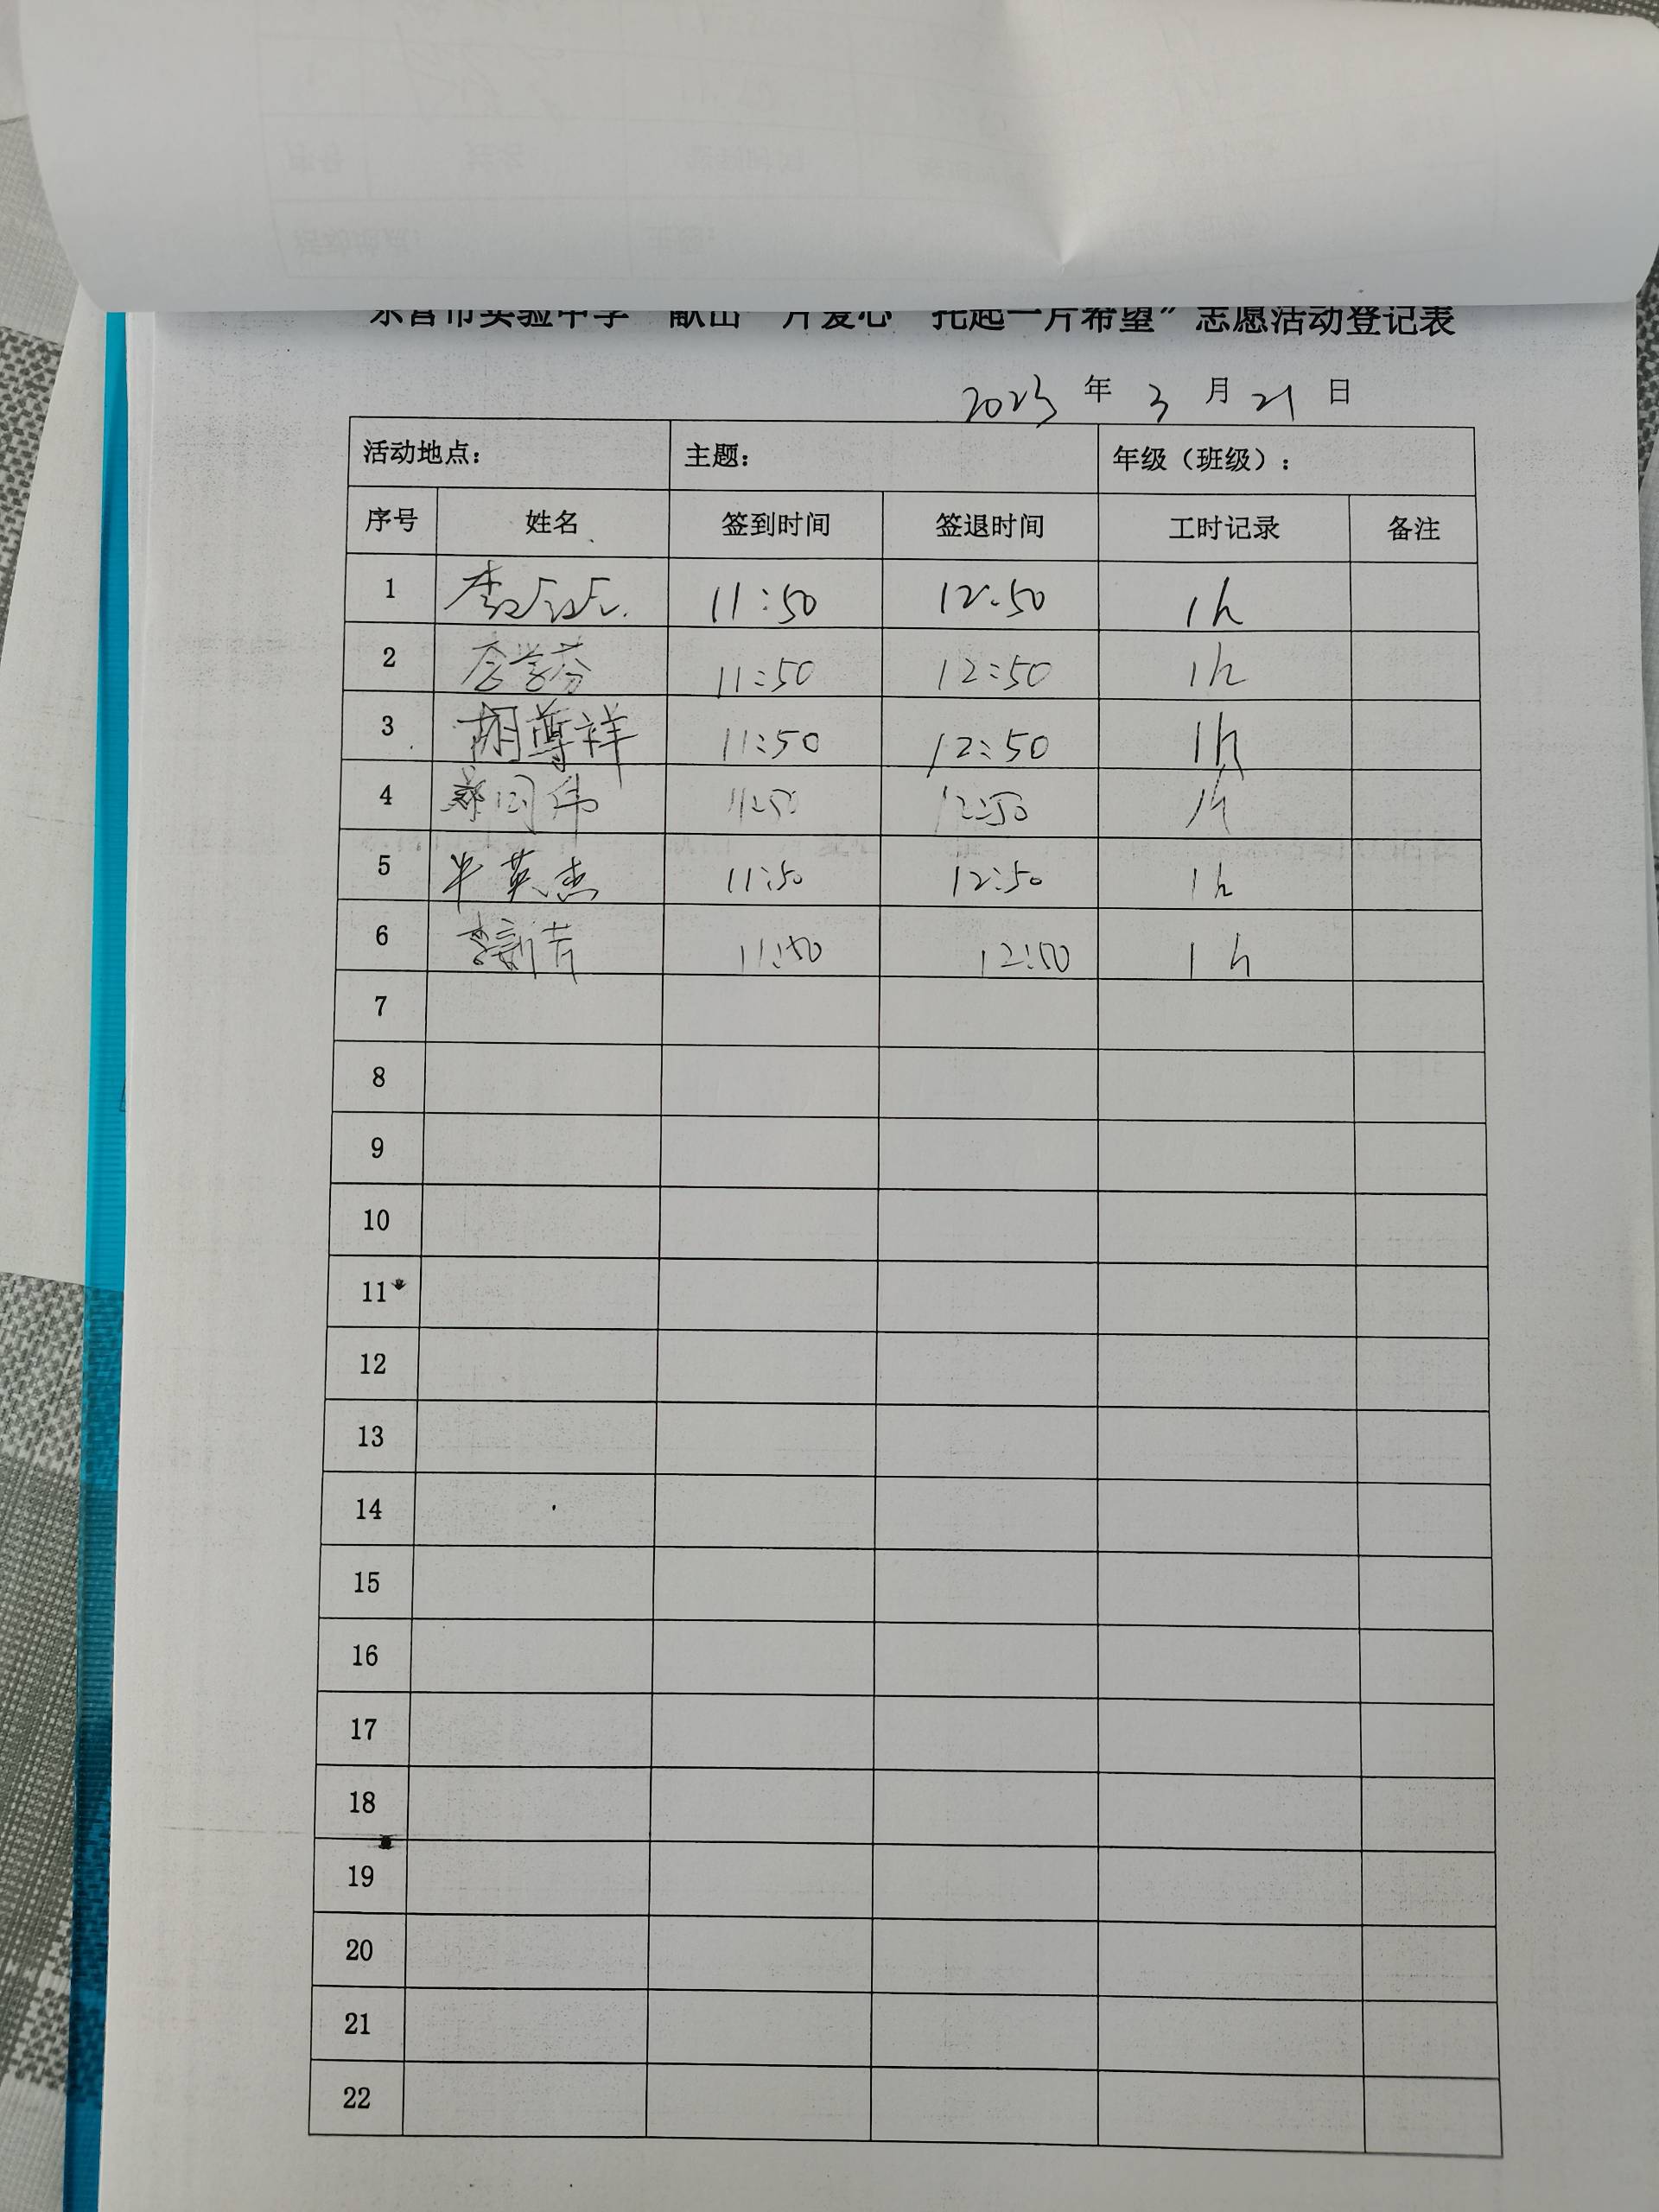 东营市实验中学“献出一片爱心 托起一片希望”志愿活动登记表
2023 年 3 月 21 日
活动地点： 主题： 年级（班级）：
序号 姓名 签到时间 签退时间 工时记录 备注
1 11:50 12:50 1h
2 11:50 12:50 1h
3 胡尊祥 11:50 12:50 1h
4 11:50 12:50 1h
5 牛英杰 11:50 12:50 1h
6 11:50 12:50 1h
7
8
9
10
11
12
13
14
15
16
17
18
19
20
21
22